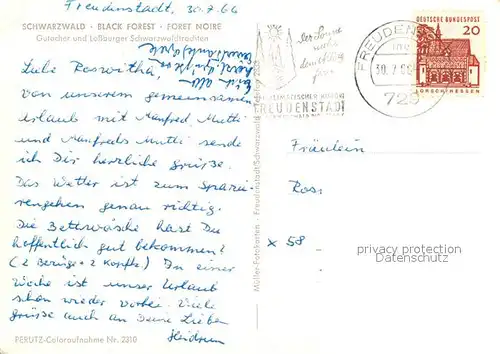 Freudenstadt, 30.7.66
SCHWARZWALD - BLACK FOREST - FORET NOIRE
Gutacher und Loßburger Schwarzwaldtrachten
Liebe Roswitha!
von unserem gemeinsamen
Urlaub mit Manfred, Mutti
und Manfreds Mutti sende
ich Dir herzliche Grüße.
Das Wetter ist zum Spazie-
rengehen genau richtig.
Die Bettwäsche hast Du
hoffentlich gut bekommen?
(2 Bezüge + 2 Kopfk.) In einer
Woche ist unser Urlaub
schon wieder vorbei. Viele
Grüße auch an Deine Lieben
Heidrun
PERUTZ-Coloraufnahme Nr. 2310
Müller-Fotokarten · Freudenstadt/Schwarzwald
FREUDENSTADT
FREUDENS
30.7.66
729
DEUTSCHE BUNDESPOST
20
LORSCH/HESSEN
Fräulein
Ros
x 58
privacy protection
Datenschutz